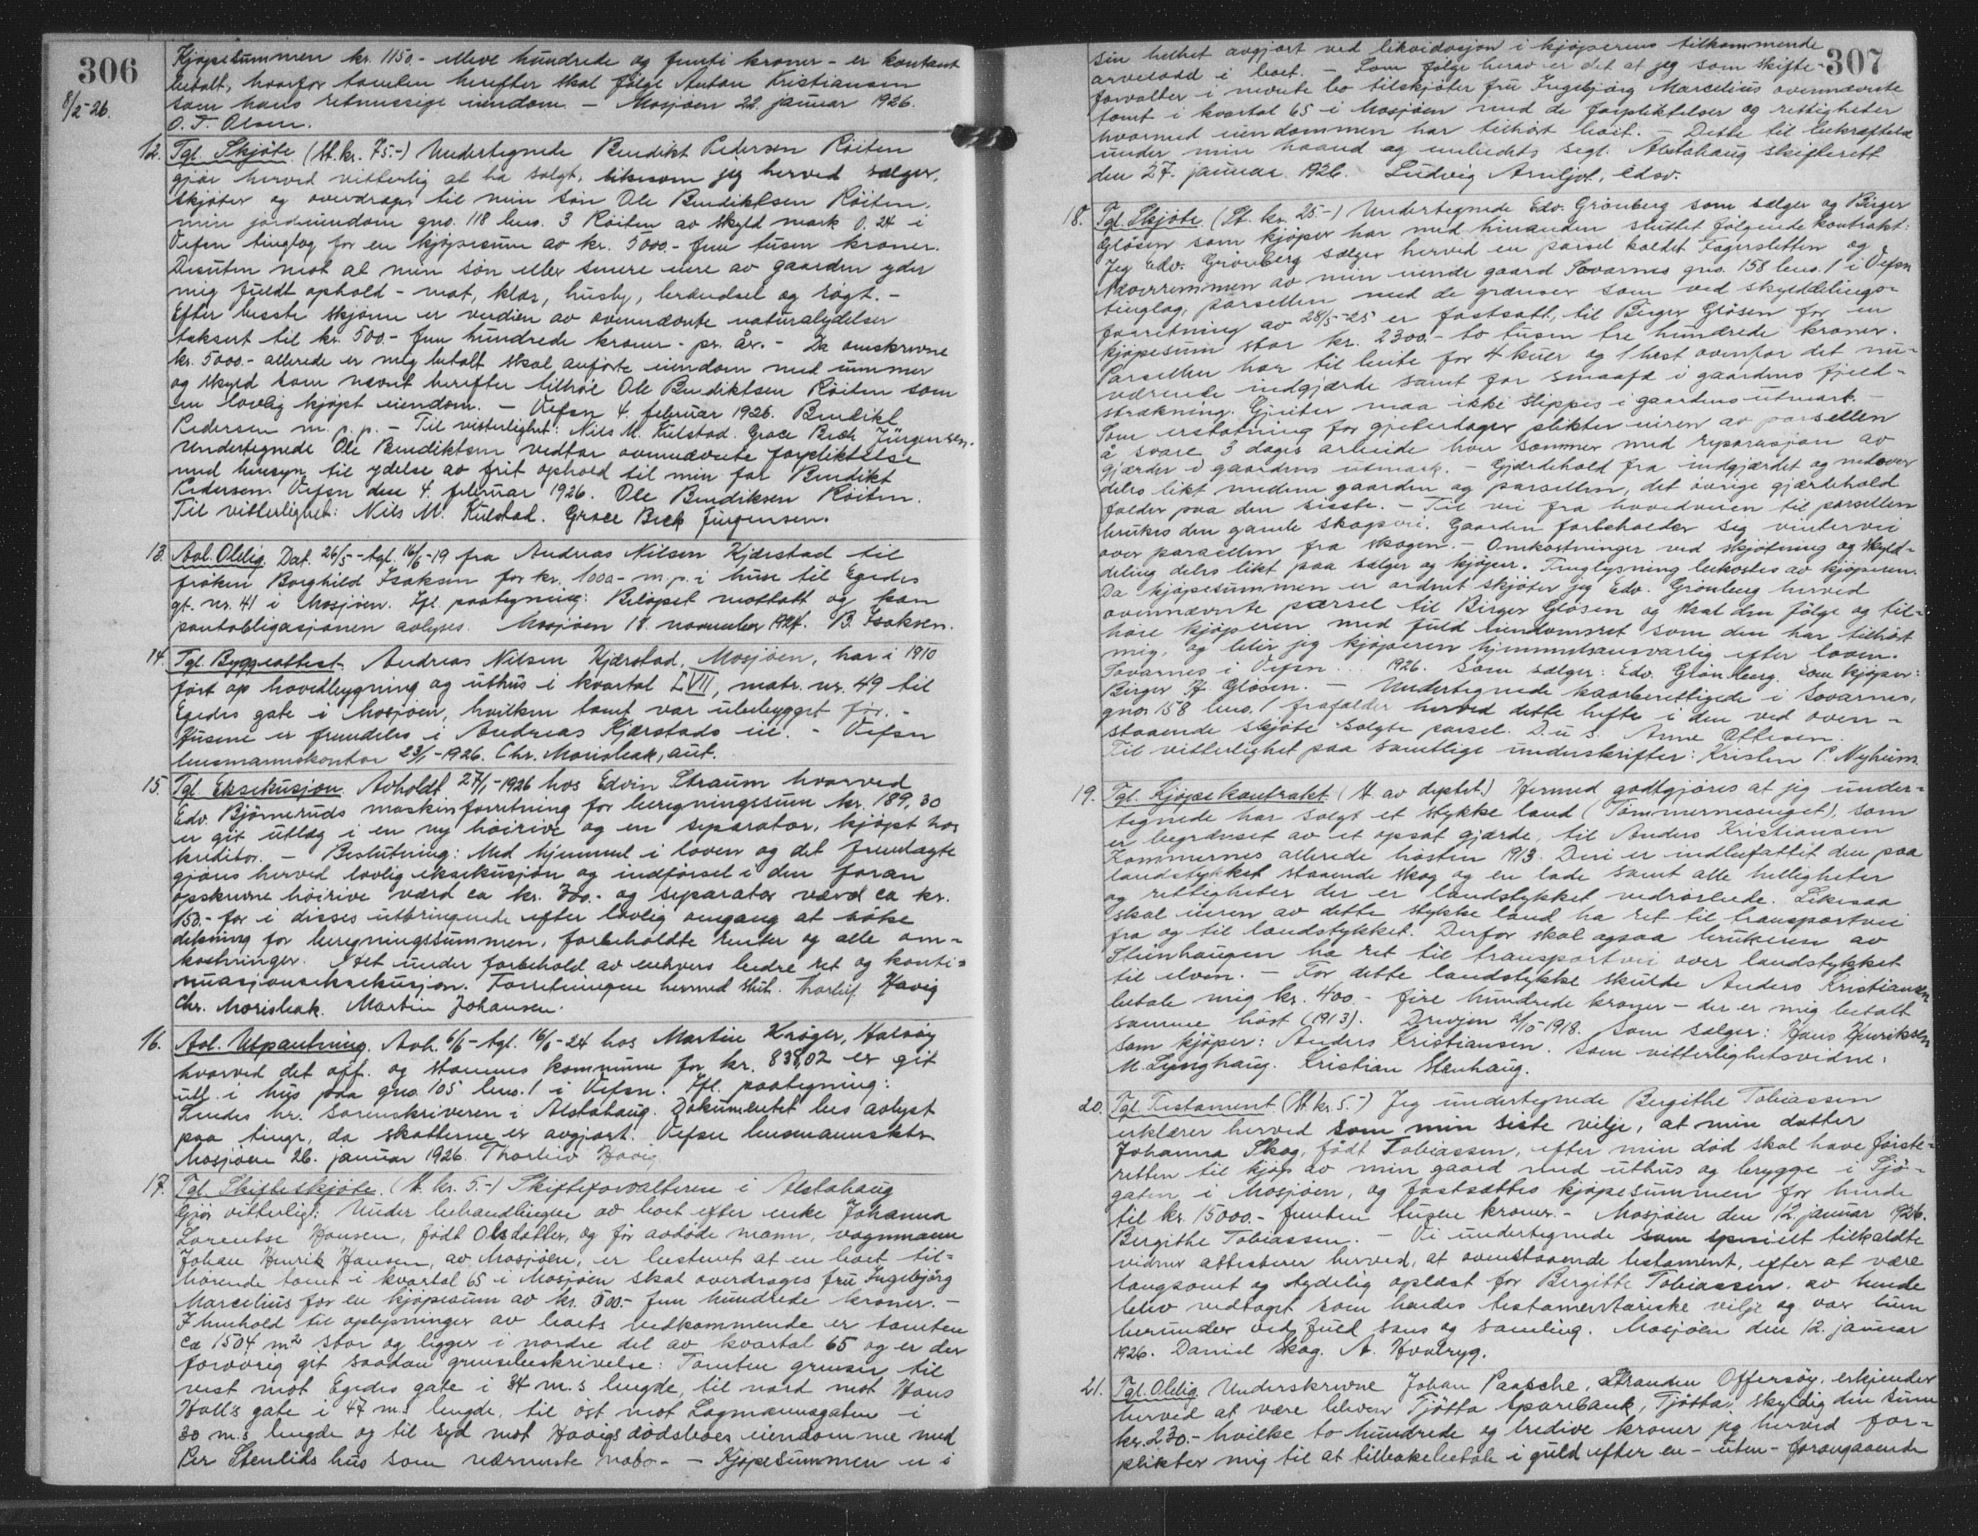 306
8/2-26.
Kjøpesummen kr. 1150.- elleve hundrede og femti kroner - er kontant
betalt, hvorfor tomten herefter skal følge Anton Kristiansen
som hans retmessige eiendom. - Mosjøen 22. januar 1926.
O. T. Olsen.
12. Tgl. Skjøte (St. kr. 75.-) Undertegnede Bendikt Pedersen Røiten
gjør herved vitterlig at ha solgt, liksom jeg herved sælger,
skjøter og overdrager til min søn Ole Bendiktsen Røiten,
min jordeiendom gno. 118 bno. 3 Røiten av skyld mark 0.24 i
Vefsn tinglag for en kjøpesum av kr. 5000.- fem tusen kroner.
Desuten mot at min søn eller senere eiere av gaarden yder
mig fuldt ophold - mat, klær, husly, brændsel og røgt. -
Efter beste skjønn er verdien av ovennævnte naturalydelser
taksert til kr. 500.- fem hundrede kroner - pr. år. - Da omskrevne
kr. 5000.- allerede er mig betalt skal anførte eiendom med nummer
og skyld som nevnt herefter tilhøre Ole Bendiktsen Røiten som
en lovlig kjøpt eiendom. - Vefsn 4. februar 1926. Bendikt
Pedersen m. p. p. - Til vitterlighet: Nils M. Kulstad. Grace Beck Jürgensen.
Undertegnede Ole Bendiktsen vedtar ovennævnte forpliktelse
med hensyn til ydelse av frit ophold til min far Bendikt
Pedersen. Vefsn den 4. februar 1926. Ole Bendiksen Røiten.
Til vitterlighet: Nils M. Kulstad. Grace Beck Jürgensen.
13. Avl. Oblig. Dat. 26/5 - tgl. 16/6-19 fra Andreas Nilsen Kjærstad til
frøken Borghild Isaksen for kr. 1000.- m. p. i huse til Egedes
gt. nr. 41 i Mosjøen. Ifl. paategning: Beløpet mottatt og kan
pantobligasjonen avlyses. Mosjøen 18. november 1924. B. Isaksen.
14. Tgl. Byggeattest. Andreas Nilsen Kjærstad, Mosjøen, har i 1910
ført op hovedbygning og uthus i kvartal LVII, matr. nr. 49 til
Egedes gate i Mosjøen, hvilken tomt var ubebygget før. -
Husene er fremdeles i Andreas Kjærstads eie. - Vefsn
lensmannskontor 23/1-1926. Chr. Morisbak, aut.
15. Tgl. Eksekusjon. Avholdt 27/1-1926 hos Edvin Straum hvorved
Edv. Bjørneruds maskinforretning for beregningssum kr. 189,30
er git utlæg i en ny høirive og en separator, kjøpt hos
kreditor. - Beslutning: Med hjemmel i loven og det fremlagte
gjøres herved lovlig eksekusjon og indførsel i den foran
opskrevne høirive værd ca kr. 300.- og separator værd ca kr.
150.- for i disses utbringende efter lovlig omgang at søke
dekning for beregningssummen, forbeholdte renter og alle om-
kostninger. Alt under forbehold av enhvers bedre ret og konti-
nuasjonseksekusjon. Forretningen hermed slut. Thorleif Havig
Chr. Morisbak. Martin Johansen.
16. Avl. Utpantning. Avh. 6/6 - tgl. 16/6-24 hos Martin Krøger, Halsøy
hvorved det off. og stamnes kommune for kr. 838,02 er git
utl. i hus paa gno. 105 bno. 1 i Vefsn. Ifl. paategning:
Sendes hr. sorenskriveren i Alstahaug. Dokumentet bes avlyst
paa tinge, da skatterne er avgjort. Vefsn lensmannsktr.
Mosjøen 26. januar 1926. Thorleiv Havig
17. Tgl. Skifteskjøte. (St. kr. 5.-) Skifteforvalteren i Alstahaug
Gjør vitterligt: Under behandlingen av boet efter enke Johanna
Lorentse Hansen, født Olsdatter, og før avdøde mann, vognmann
Johan Henrik Hansen, av Mosjøen, er bestemt at en boet til-
hørende tomt i kvartal 65 i Mosjøen skal overdrages fru Ingebjørg
Marcelius for en kjøpesum av kr. 500.- fem hundrede kroner. -
I henhold til oplysninger av boets vedkommende er tomten
ca 1504 m² stor og ligger i nordre del av kvartal 65 og er der
forøvrig git saadan grensebeskrivelse: Tomten grenser til
vest mot Egedes gate i 34 m.s lengde, til nord mot Hans
Holls gate i 47 m.s lengde, til ost mot Lagmannsgaten i
30 m.s lengde og til syd mot Havigs dødsboes eiendomme med
Per Stenlids hus som nærmeste nabo - - Kjøpesummen er i
307
sin helhet avgjort ved likvidasjon i kjøperens tilkommende
arvelodd i boet. - Som følge herav er det at jeg som skifte-
forvalter i nevnte bo tilskjøter fru Ingebjørg Marcelius ovennævnte
tomt i kvartal 65 i Mosjøen med de forpliktelser og rettigheter
hvormed eiendommen har tilhørt boet. - Dette til bekræftelse
under min haand og embedets segl. Alstahaug skifterett
den 27. januar 1926. Ludvig Arntjot, edsv.
18. Tgl. Skjøte. (St. kr. 25.-) Undertegnede Edv. Grønberg som sælger og Birger
Gløsen som kjøper har med hinanden sluttet følgende kontrakt:
Jeg Edv. Grønberg sælger herved en parsel kaldet Fagersletten og
Næverremmen av min eiende gaard Tovarnes gno. 158 bno. 1 i Vefsn
tinglag, parsellen med de grænser som ved skylddelings-
forretning av 28/5-25 er fastsatt, til Birger Gløsen for en
kjøpesum stor kr. 2300.- to tusen tre hundrede kroner.
Parsellen har til beite for 4 kuer og 1 hest ovenfor det nu-
værende indgjærde samt for smaafæ i gaardens fjeld-
strækning. Gjeiter maa ikke slippes i gaardens utmark. -
Som erstatning for gjeterdager plikter eieren av parsellen
å svare 3 dages arbeide hver sommer med reparasjon av
gjærder i gaardens utmark. - Gjærdehold fra indgjærdet og nedover
deles likt mellem gaarden og parsellen, det øvrige gjærdehold
falder paa den sidste. - Til vei fra hovedveien til parsellen
brukes den gamle skogsvei. Gaarden forbeholder seg vintervei
over parsellen fra skogen. - Omkostninger ved skjøtning og skyld-
deling deles likt paa sælger og kjøper. Tinglysning bekostes av kjøperen.
Da kjøpesummen er ordnet skjøter jeg Edv. Grønberg herved
ovennævnte parsel til Birger Gløsen og skal den følge og til-
høre kjøperen med fuld eiendomsret som den har tilhørt
mig, og blir jeg kjøperen hjemmelsansvarlig efter loven.
Tovarnes i Vefsn . . 1926. Som sælger: Edv. Grønberg. Som kjøper:
Birger H. Gløsen. - Undertegnede kaarberettigede i Tovarnes,
gno. 158 bno. 1 frafalder herved dette hefte i den ved oven-
staaende skjøte solgte parsel. D. u. s. Anne Ottesen.
Til vitterlighet paa samtlige underskrifter: Kristen P. Nyheim
19. Tgl. Kjøpekontrakt. (St. av dyktet.) Hermed godtgjøres at jeg under-
tegnede har solgt et stykke land (Tømmernesenget), som
er begrænset av et opsat gjærde, til Anders Kristiansen
Kommernes allerede høsten 1913. Deri er indbefattet den paa
landstykket staaende skog og en lade samt alle helligheter
og rettigheter der er landstykket vedrørende. Likesaa
skal eieren av dette stykke land ha ret til transportvei
fra og til landstykket. Derfor skal ogsaa brukeren av
Stenhaugen ha ret til transportvei over landstykket
til elven. - For dette landstykke skulde Anders Kristiansen
betale mig kr. 400.- fire hundrede kroner - der er mig betalt
samme høst (1913). Drevjen 2/10-1918. Som sælger: Hans Henriksen
Som kjøper: Anders Kristiansen. Som vitterlighetsvidne:
M. Lynghaug. Kristian Stenhaug.
20. Tgl. Testament. (St. kr. 5.-) Jeg undertegnede Bergithe Tobiassen
erklærer herved som min siste vilje, at min datter
Johanna Skog, født Tobiassen, efter min død skal have første-
retten til kjøp av min gaard med uthus og brygge i Sjø-
gaten i Mosjøen, og fastsættes kjøpesummen for hende
til kr. 15000.- femten tusen kroner. - Mosjøen den 12. januar 1926.
Bergithe Tobiassen. - Vi undertegnede som specielt tilkaldte
vidner attesterer herved, at ovenstaaende testament, efter at være
langsomt og tydelig oplæst for Bergitte Tobiassen, av hende
blev vedtaget som hendes testamentariske vilje og var hun
herunder ved fuld sans og samling. Mosjøen den 12. januar
1926. Daniel Skog. A. Kvalryg.
21. Tgl. Oblig. Underskrevne Johan Paasche, Stranden Offersøy, erkjender
herved at være bleven Tjøtta sparebank, Tjøtta, skyldig den sum
kr. 230.- hvilke to hundrede og tredive kroner jeg herved for-
plikter mig til at tilbakebetale i guld efter en - uten - forangaaende